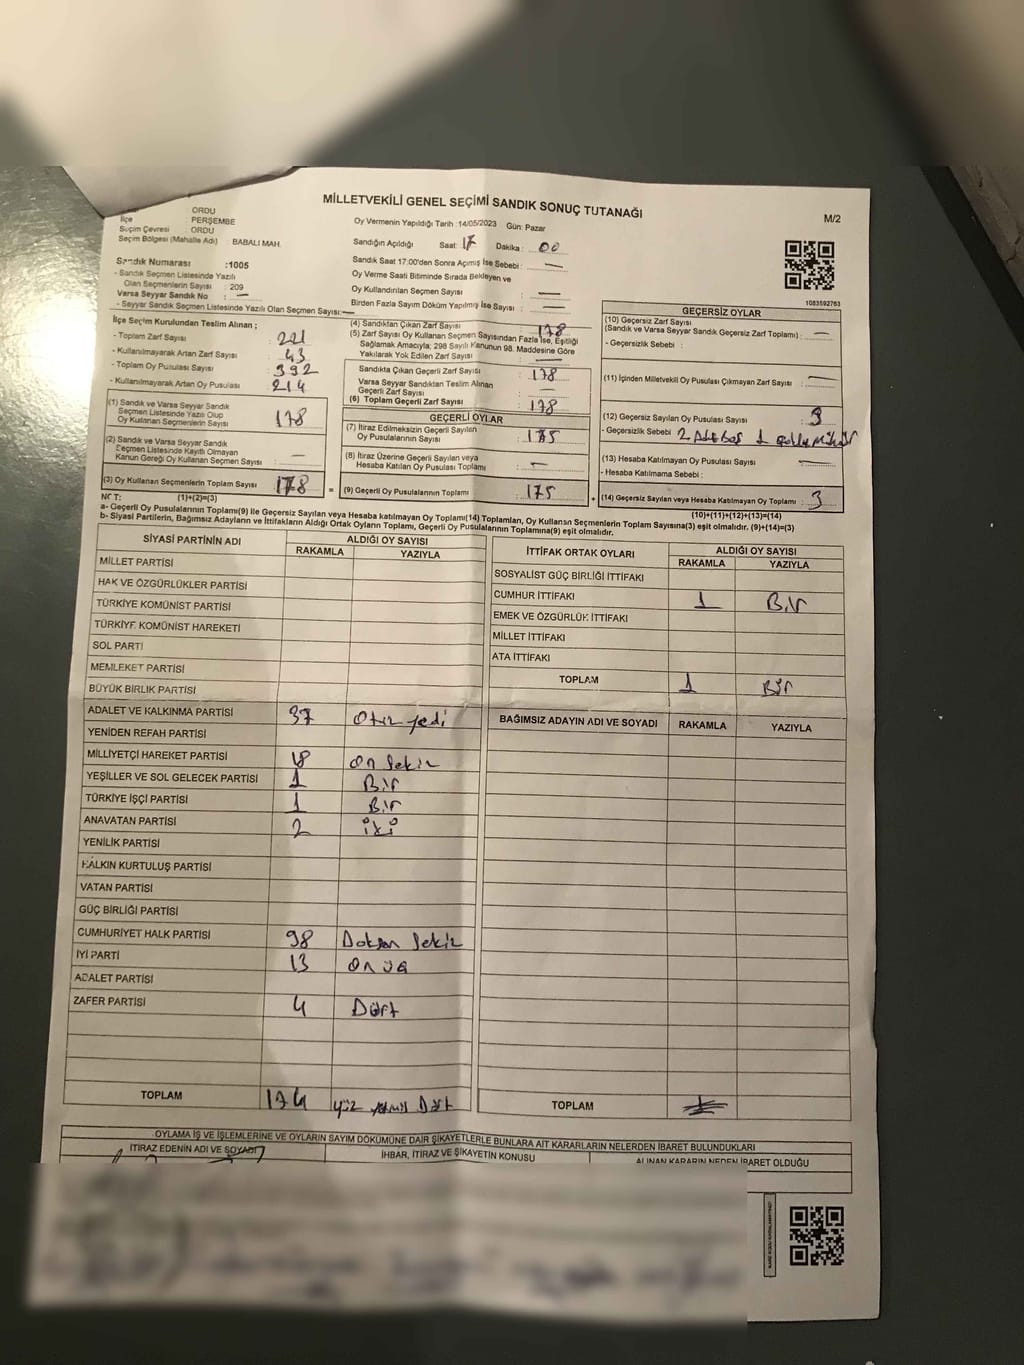 MİLLETVEKİLİ GENEL SEÇİMİ SANDIK SONUÇ TUTANAĞI
M/2
ORDU
İlçe : PERŞEMBE
Seçim Çevresi : ORDU
Seçim Bölgesi (Mahalle Adı) : BABALI MAH.
Oy Vermenin Yapıldığı Tarih :14/05/2023 Gün: Pazar
Sandığın Açıldığı Saat: 17 Dakika : 00
Sandık Saat 17:00'den Sonra Açmış İse Sebebi : —
Oy Verme Saati Bitiminde Sırada Bekleyen ve
Oy Kullandırılan Seçmen Sayısı : —
Birden Fazla Sayım Döküm Yapılmış İse Sayısı : —
Sandık Numarası :1005
- Sandık Seçmen Listesinde Yazılı
Olan Seçmenlerin Sayısı : 209
Varsa Seyyar Sandık No : —
- Seyyar Sandık Seçmen Listesinde Yazılı Olan Seçmen Sayısı: —
1083592763
İlçe Seçim Kurulundan Teslim Alınan ;
- Toplam Zarf Sayısı : 221
- Kullanılmayarak Artan Zarf Sayısı : 43
- Toplam Oy Pusulası Sayısı : 392
- Kullanılmayarak Artan Oy Pusulası : 214
(1) Sandık ve Varsa Seyyar Sandık
Seçmen Listesinde Yazılı Olup
Oy Kullanan Seçmenlerin Sayısı : 178
(2) Sandık ve Varsa Seyyar Sandık
Seçmen Listesinde Kayıtlı Olmayan
Kanun Gereği Oy Kullanan Seçmen Sayısı : —
(3) Oy Kullanan Seçmenlerin Toplam Sayısı : 178
(1)+(2)=(3)
(4) Sandıktan Çıkan Zarf Sayısı : 178
(5) Zarf Sayısı Oy Kullanan Seçmen Sayısından Fazla İse, Eşitliği
Sağlamak Amacıyla; 298 Sayılı Kanunun 98. Maddesine Göre
Yakılarak Yok Edilen Zarf Sayısı : —
Sandıkta Çıkan Geçerli Zarf Sayısı : 178
Varsa Seyyar Sandıktan Teslim Alınan
Geçerli Zarf Sayısı : —
(6) Toplam Geçerli Zarf Sayısı : 178
GEÇERLİ OYLAR
(7) İtiraz Edilmeksizin Geçerli Sayılan
Oy Pusulalarının Sayısı : 175
(8) İtiraz Üzerine Geçerli Sayılan veya
Hesaba Katılan Oy Pusulası Toplamı : —
= (9) Geçerli Oy Pusulalarının Toplamı : 175
GEÇERSİZ OYLAR
(10) Geçersiz Zarf Sayısı
(Sandık ve Varsa Seyyar Sandık Geçersiz Zarf Toplamı) : —
- Geçersizlik Sebebi :
(11) İçinden Milletvekili Oy Pusulası Çıkmayan Zarf Sayısı : —
(12) Geçersiz Sayılan Oy Pusulası Sayısı : 3
- Geçersizlik Sebebi : 2 Adet Boş 1
(13) Hesaba Katılmayan Oy Pusulası Sayısı : —
- Hesaba Katılmama Sebebi :
+ (14) Geçersiz Sayılan veya Hesaba Katılmayan Oy Toplamı : 3
(10)+(11)+(12)+(13)=(14)
NOT:
a- Geçerli Oy Pusulalarının Toplamı(9) ile Geçersiz Sayılan veya Hesaba Katılmayan Oy Toplamı(14) Toplamları, Oy Kullanan Seçmenlerin Toplam Sayısına(3) eşit olmalıdır. (9)+(14)=(3)
b- Siyasi Partilerin, Bağımsız Adayların ve İttifakların Aldığı Ortak Oyların Toplamı, Geçerli Oy Pusulalarının Toplamına(9) eşit olmalıdır.
SİYASİ PARTİNİN ADI ALDIĞI OY SAYISI
RAKAMLA YAZIYLA
MİLLET PARTİSİ
HAK VE ÖZGÜRLÜKLER PARTİSİ
TÜRKİYE KOMÜNİST PARTİSİ
TÜRKİYE KOMÜNİST HAREKETİ
SOL PARTİ
MEMLEKET PARTİSİ
BÜYÜK BİRLİK PARTİSİ
ADALET VE KALKINMA PARTİSİ 37 Otuz yedi
YENİDEN REFAH PARTİSİ
MİLLİYETÇİ HAREKET PARTİSİ 18 On Sekiz
YEŞİLLER VE SOL GELECEK PARTİSİ 1 Bir
TÜRKİYE İŞÇİ PARTİSİ 1 Bir
ANAVATAN PARTİSİ 2 iki
YENİLİK PARTİSİ
HALKIN KURTULUŞ PARTİSİ
VATAN PARTİSİ
GÜÇ BİRLİĞİ PARTİSİ
CUMHURİYET HALK PARTİSİ 98 Doksan Sekiz
İYİ PARTİ 13 On üç
ADALET PARTİSİ
ZAFER PARTİSİ 4 Dört
TOPLAM 174 yüz yetmiş Dört
İTTİFAK ORTAK OYLARI ALDIĞI OY SAYISI
RAKAMLA YAZIYLA
SOSYALİST GÜÇ BİRLİĞİ İTTİFAKI
CUMHUR İTTİFAKI 1 Bir
EMEK VE ÖZGÜRLÜK İTTİFAKI
MİLLET İTTİFAKI
ATA İTTİFAKI
TOPLAM 1 Bir
BAĞIMSIZ ADAYIN ADI VE SOYADI RAKAMLA YAZIYLA
TOPLAM
OYLAMA İŞ VE İŞLEMLERİNE VE OYLARIN SAYIM DÖKÜMÜNE DAİR ŞİKAYETLERLE BUNLARA AİT KARARLARIN NELERDEN İBARET BULUNDUKLARI
İTİRAZ EDENİN ADI VE SOYADI İHBAR, İTİRAZ VE ŞİKAYETİN KONUSU ALINAN KARARIN NEDEN İBARET OLDUĞU